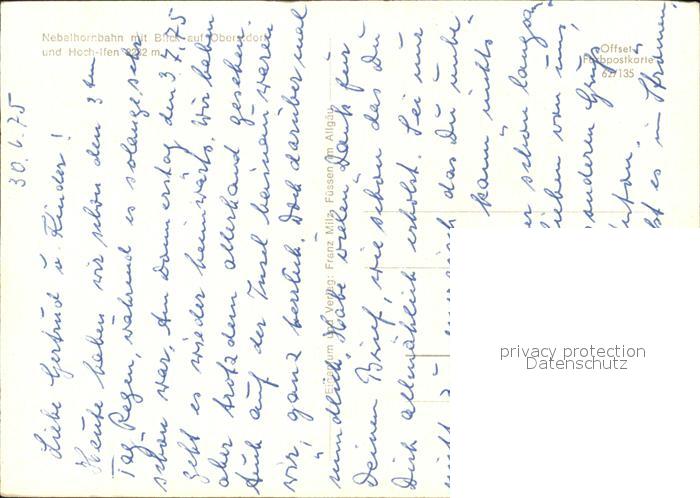 Nebelhornbahn mit Blick auf Oberstdorf
und Hoch-Ifen 2232 m
Offset
Farbpostkarte
62/135
Eigentum und Verlag: Franz Milz, Füssen im Allgäu
30.6.75
Liebe Gertrud u. Kinder!
Heute haben wir schon den 3 ten
Tag Regen, während es solange sehr
schön war. Am Donnerstag den 3.7.75
geht es wieder heimwärts. Wir haben
aber trotzdem allerhand gesehen.
Auch auf der Insel Mainau waren
wir, ganz herrlich. Doch darüber mal
mündlich. Habe vielen Dank für
Deinen Brief, wie schön das Du
Dich allmählich erholst. Sei nur
nicht das Du unbe-
kann nichts
er schön langsam
lieben von uns
sonderen Gruß
Anton.
bt es in Strömen
privacy protection
Datenschutz